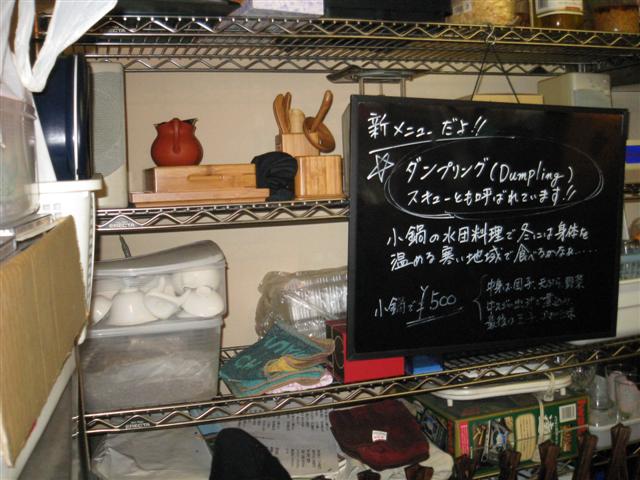 新メニューだよ!!
☆ ダンプリング(Dumpling)
スキューとも呼ばれています!!
小鍋の水団料理で冬には身体を
温める寒い地域で食べるかなぁ.....
小鍋で¥500
中身は団子、天ぷら、野菜